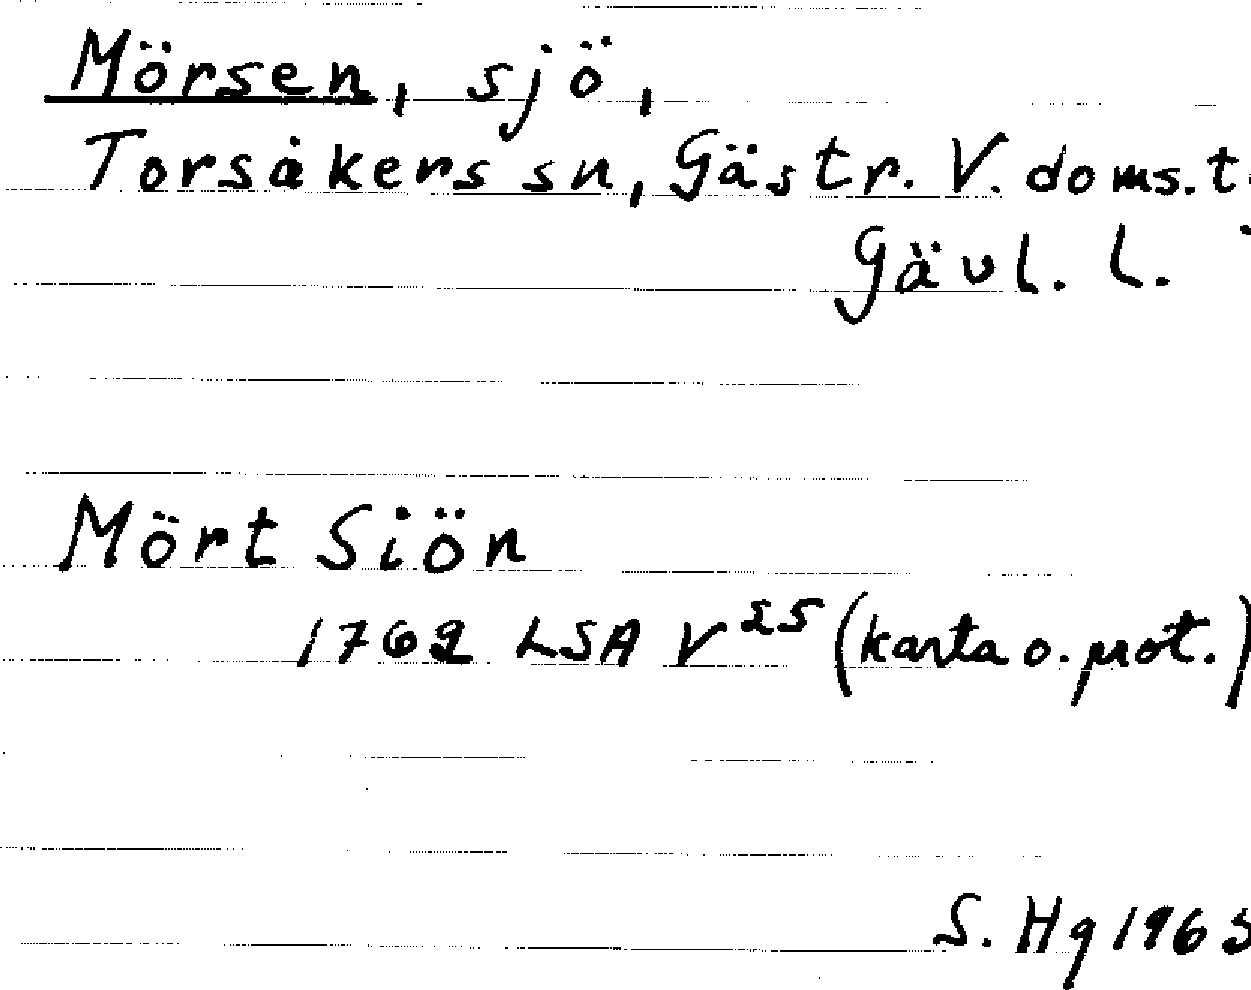 Mörsen, sjö,
Torsåkers sn, Gästr. V. doms.t.
Gävl. L.
Mört Siön
1762 LSA V 25 (karta o. prot.)
S. Hg 1963